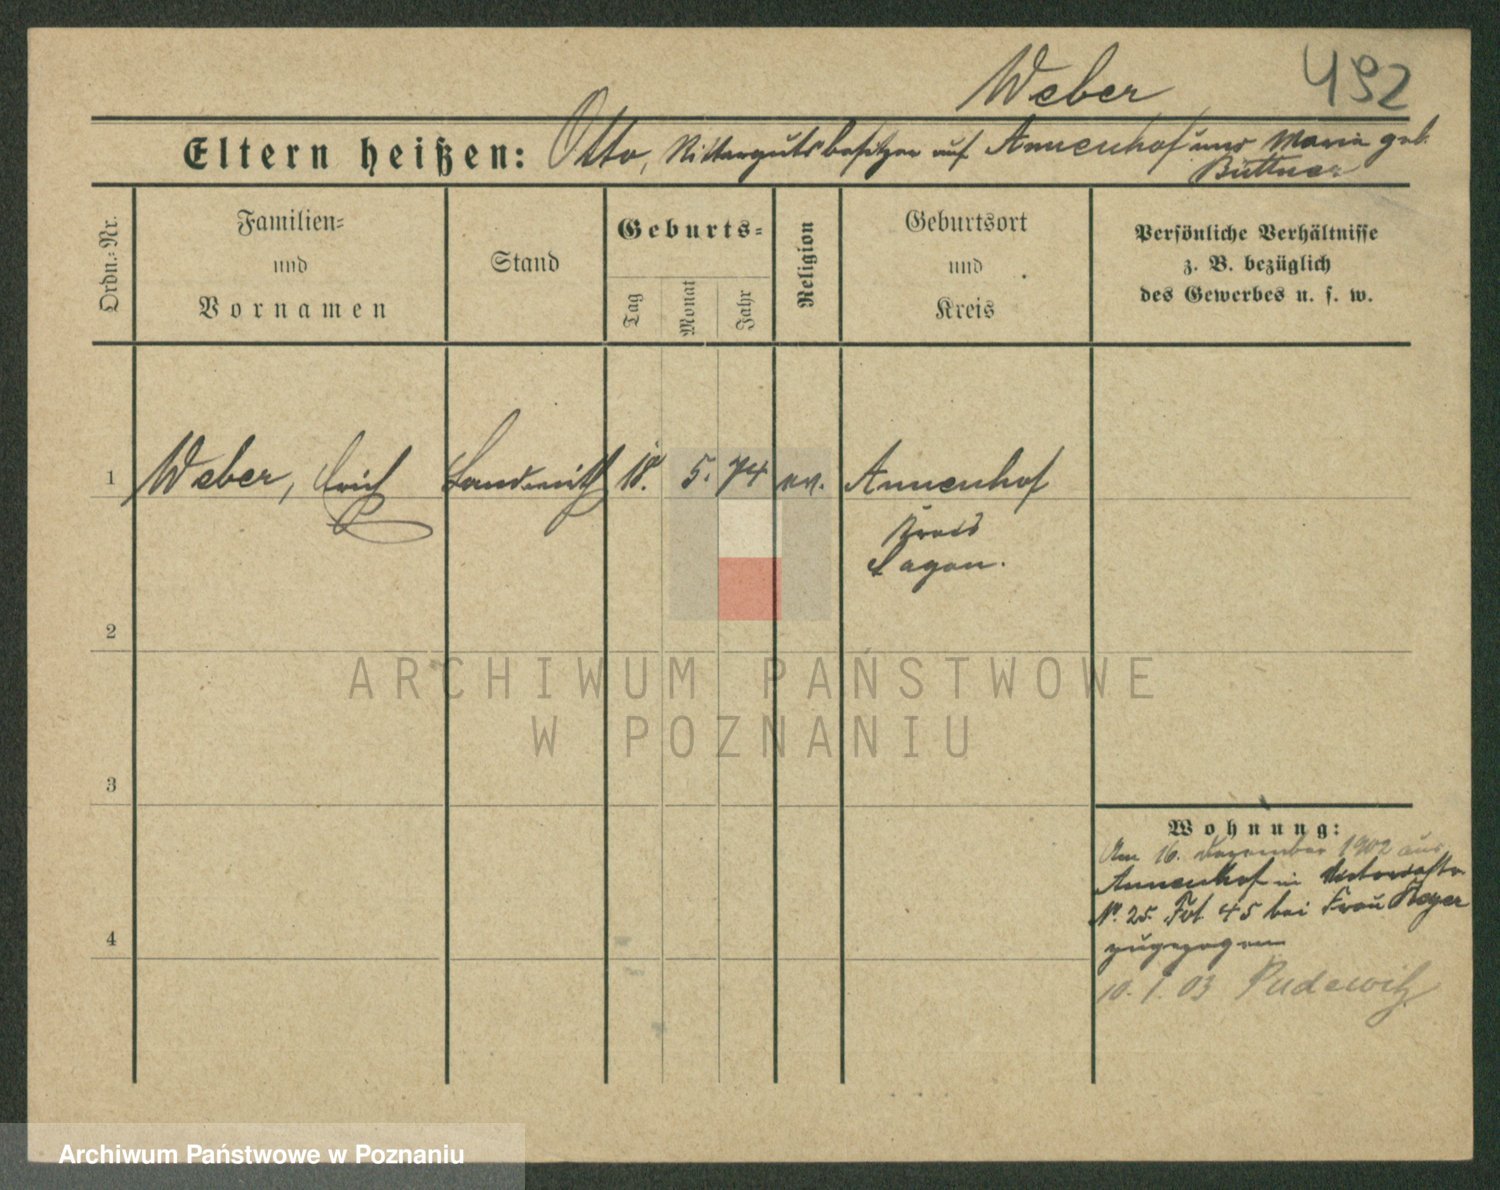 Weber 492
Eltern heißen: Otto, Rittergutsbesitzer auf Annenhof und Maria geb.
Büttner
Ordn.=Nr.
Familien=
und
Vornamen
Stand
Geburts=
Tag
Monat
Jahr
Religion
Geburtsort
und
Kreis
Persönliche Verhältnisse
z. B. bezüglich
des Gewerbes u. s. w.
1 Weber, Erich Landwirth 18. 5. 74 ev. Annenhof
Kreis
Sagan.
2
3
4
Wohnung:
Am 16. Dezember 1902 aus
Annenhof in Victoriastr.
No. 25. Fol. 45 bei Frau
zugezogen
10. 1. 03 Pudewitz
ARCHIWUM PAŃSTWOWE
W POZNANIU
Archiwum Państwowe w Poznaniu